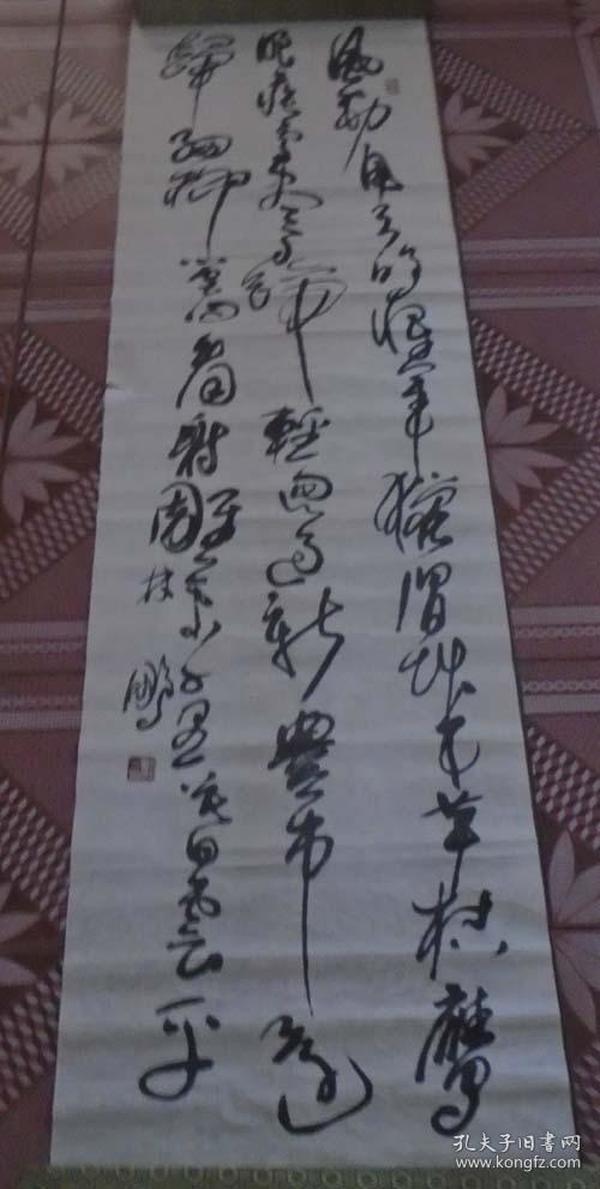 風勁角弓鳴將軍獵渭城草枯鷹
眼疾雪盡馬蹄輕忽過新豐市還
歸細柳營回看射雕處千里暮雲平
林鵬
孔夫子旧書网
www.kongfz.com